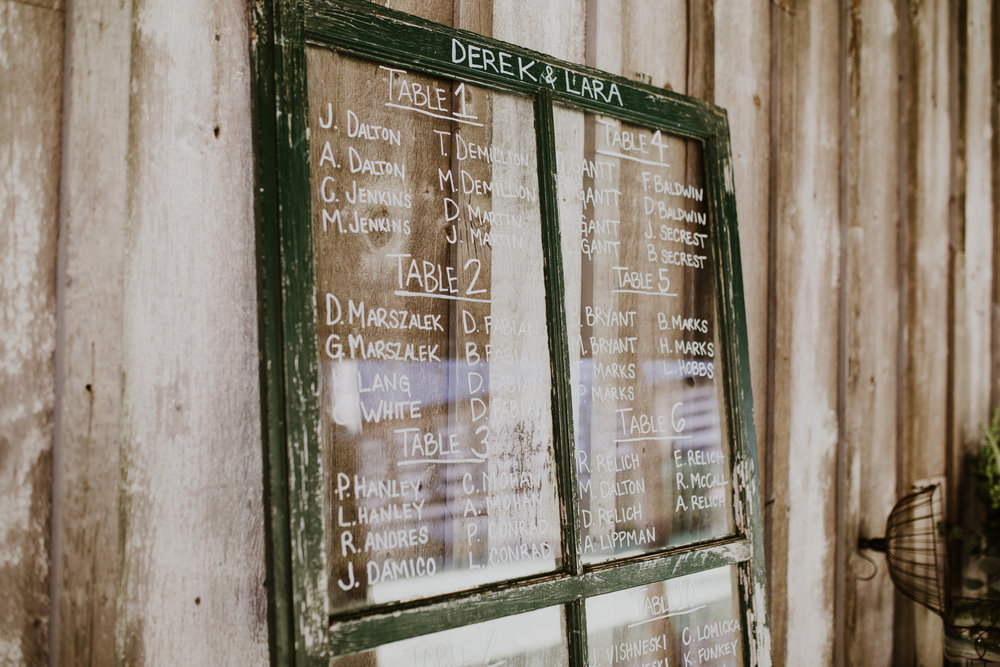 DEREK & LIARA
TABLE 1
J. DALTON
A. DALTON
C. JENKINS
M. JENKINS
T. DEMILLION
M. DEMILLION
D. MARTIN
J. MARTIN
TABLE 2
D. MARSZALEK
G. MARSZALEK
K. LANG
C. WHITE
D. FABIAN
B. FABIAN
D. FABIAN
D. FABIAN
TABLE 3
P. HANLEY
L. HANLEY
R. ANDRES
J. DAMICO
C. MOHAN
A. MOHAN
P. CONRAD
L. CONRAD
TABLE 4
GANTT
GANTT
GANTT
GANTT
F BALDWIN
D. BALDWIN
J. SECREST
B SECREST
TABLE 5
BRYANT
BRYANT
MARKS
P. MARKS
B. MARKS
H. MARKS
L. HOBBS
TABLE 6
R. RELICH
M. DALTON
D. RELICH
A. LIPPMAN
E. RELICH
R. MCCALL
A. RELICH
VISHNESKI
C. LOMICKA
K. FUNKEY